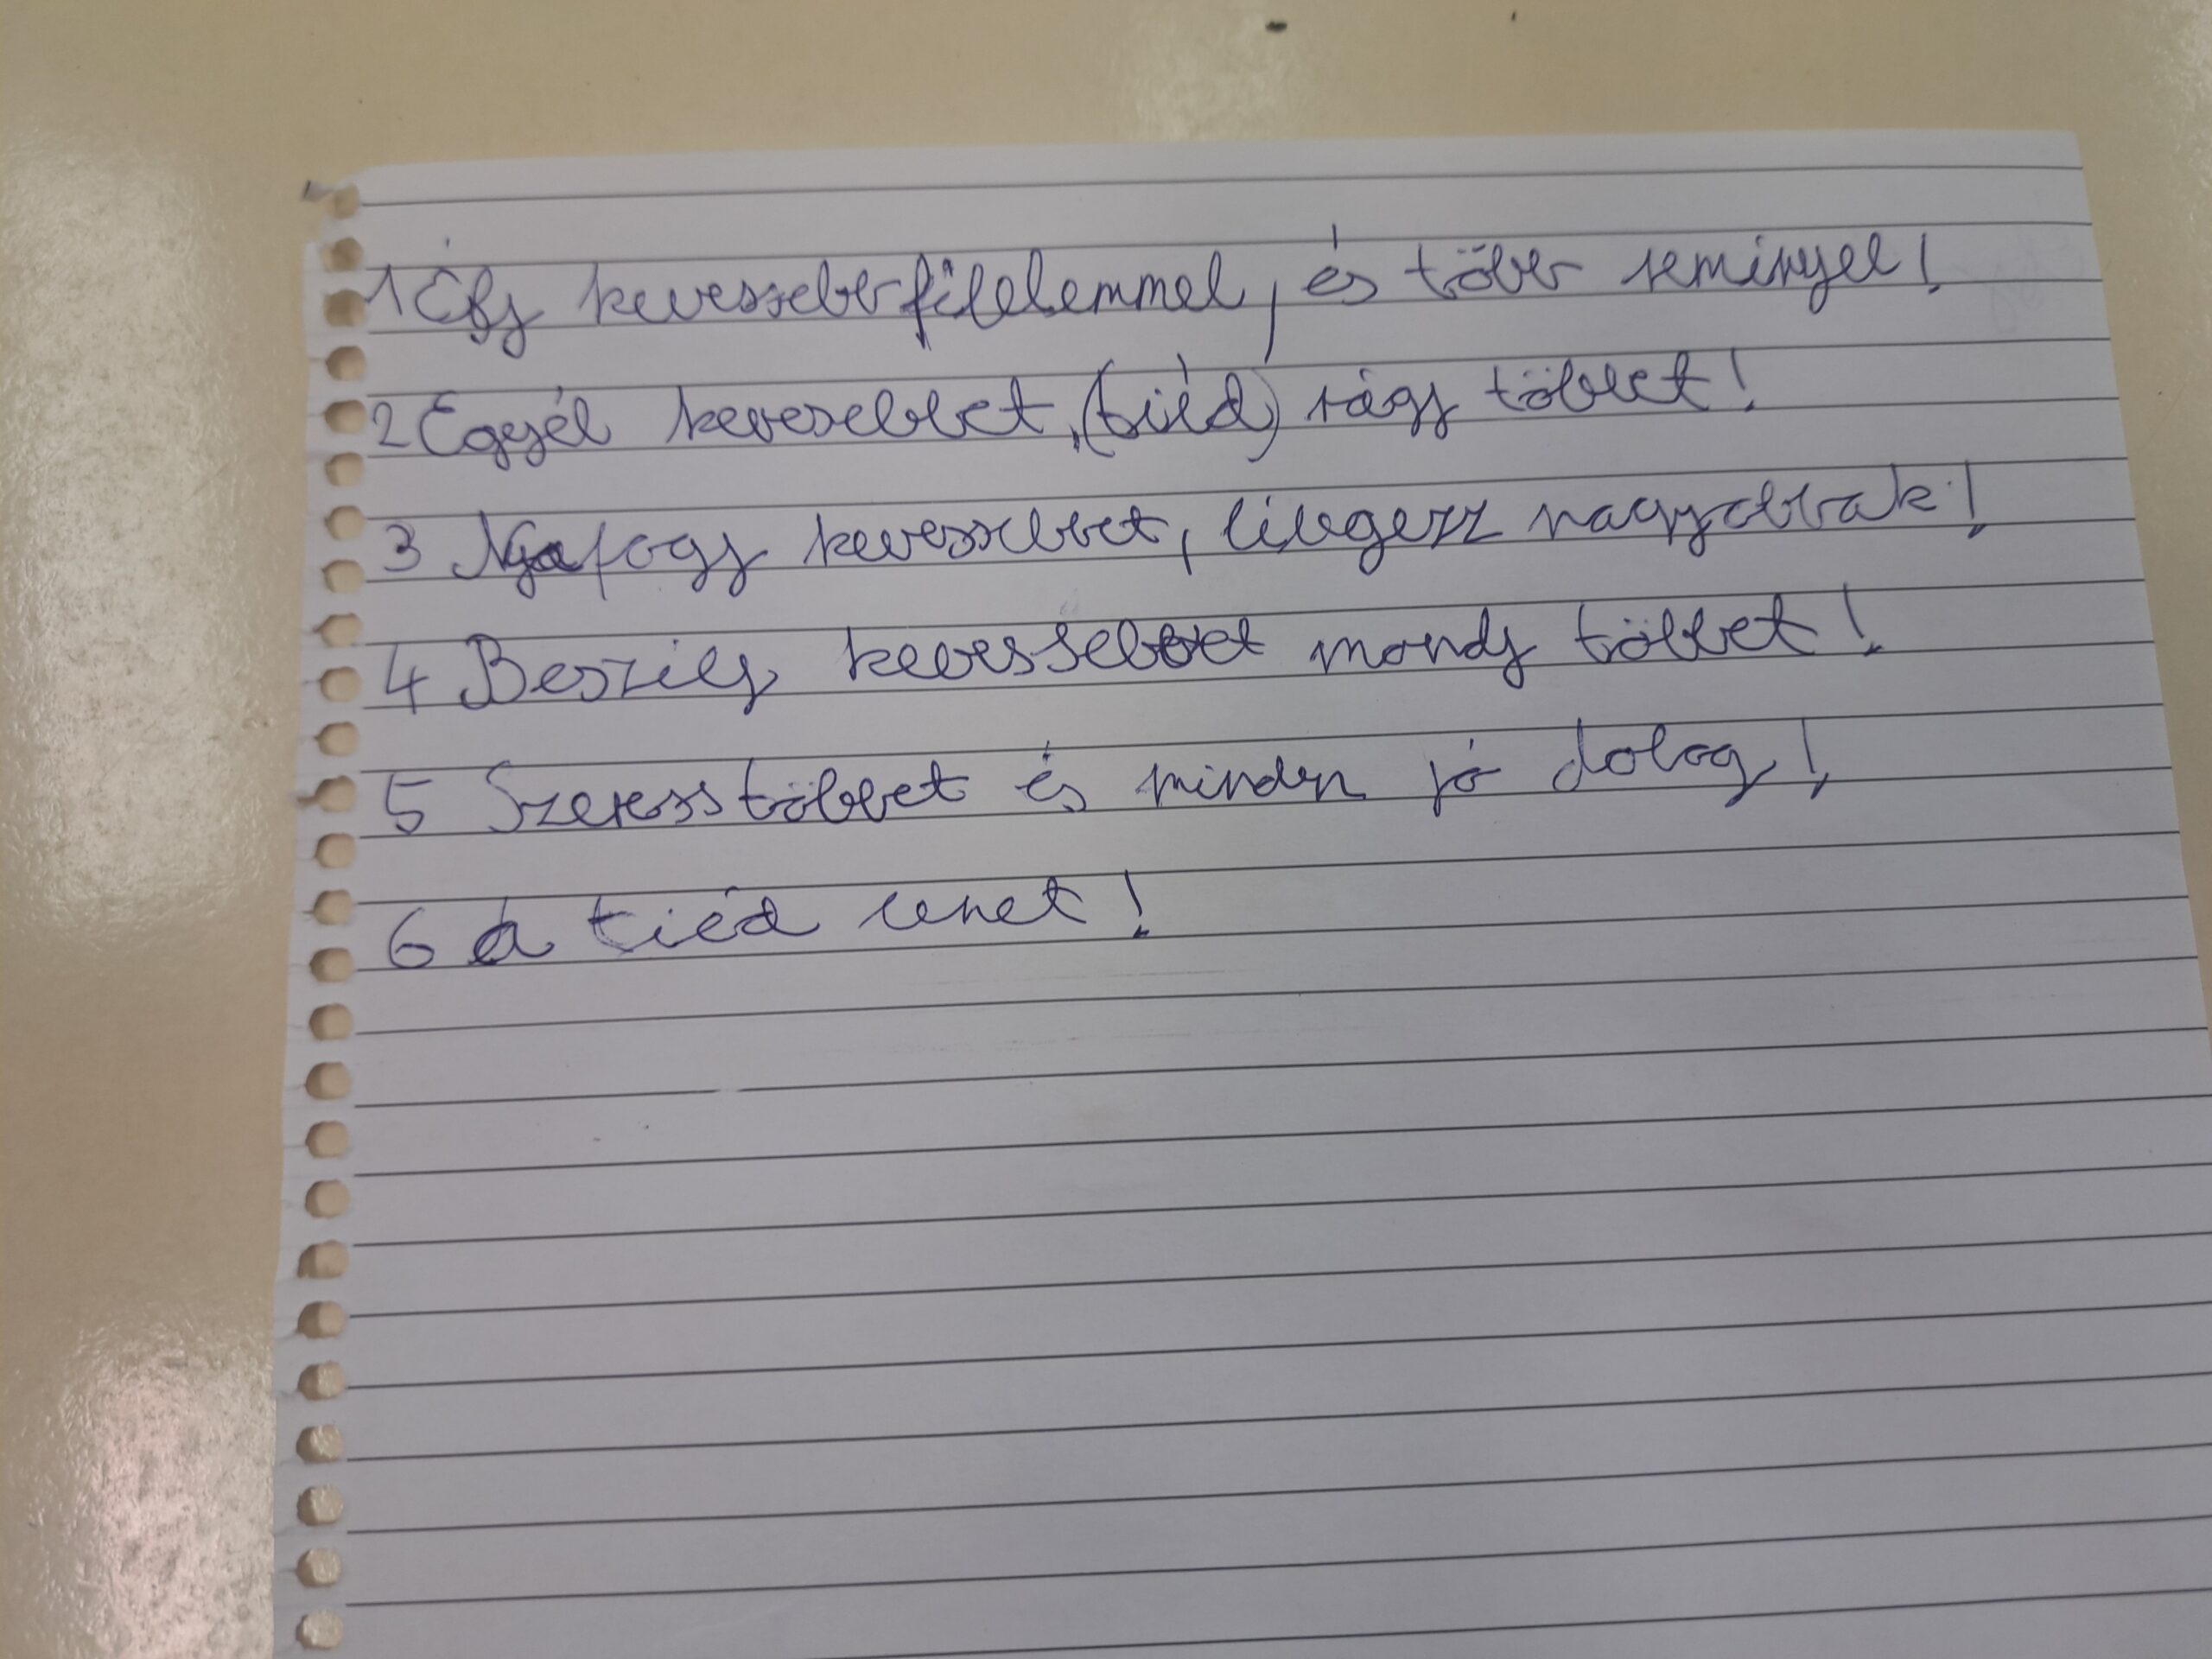 1 Élj kevesseberfélelemmel, és töber reményel!
2 Egyél kevesebbet, (tiéd) rágj többet!
3 Nyafogj kevessebbet, lélegezz nagyobbak!
4 Beszélj kevessebbet mondj többet!
5 Szeress többet és minden jó dolog!
6 a tiéd lehet!